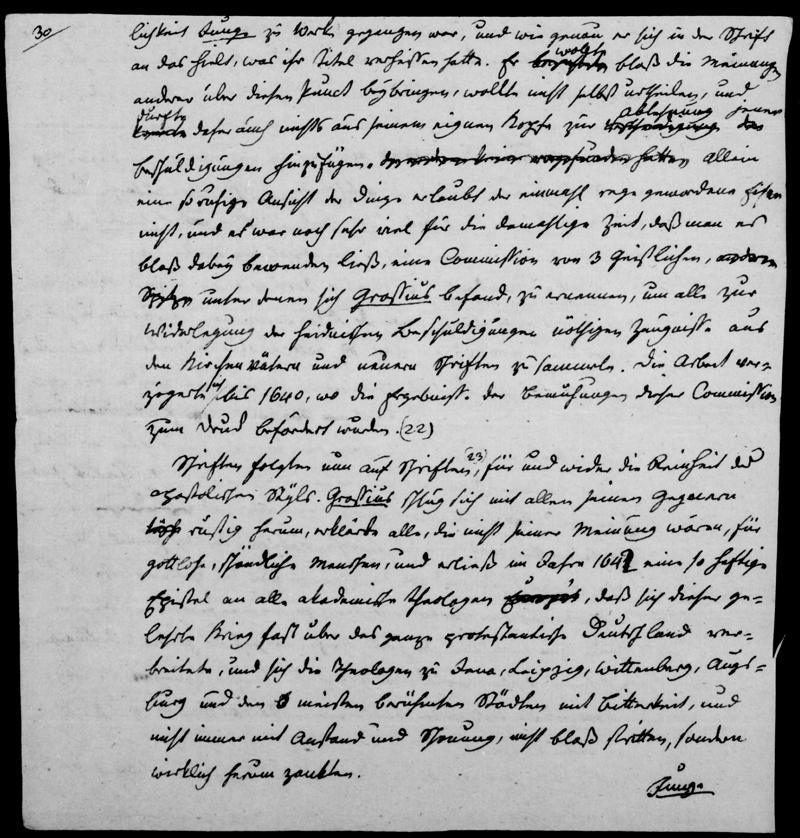 30/
lichkeit Jung. zu Werke gegangen war, und wie genau er sich in der Schrift
an das hielt, was ihr Titel verheissen hatte. Er wollte bloß die Meinungen
anderer über diesen Punct beybringen, wollte nicht selbst urtheilen, und
durfte daher auch nichts aus seinem eignen Kopfe zur Ablehnung jener
beschuldigungen hinzufügen. Allein
eine so ruhige Ansicht der Dinge erlaubt der einmahl rege gewordene Eifer
nicht, und es war noch sehr viel für die damahlige Zeit, daß man es
bloß dabey bewenden ließ, eine Commission von 3 Geistlichen,
unter denen sich Grossius befand, zu ernennen, um alle zur
Widerlegung der heidnischen Beschuldigungen nöthigen Zeugnisse aus
den Kirchenvätern und neuern Schriften zu sammeln. Die Arbeit ver-
zögerte sich bis 1640, wo die Ergebnisse der Bemühungen dieser Commission
zum Druck befördert wurden. (22)
Schriften folgten nun auf Schriften (23), für und wider die Reinheit des
apostolischen Styls. Grossius schlug sich mit allen seinen Gegnern
rüstig herum, erklärte alle, die nicht seiner Meinung wären, für
gottlose, schändliche Menschen, und erließ im Jahre 1642 eine so heftige
Epistel an alle akademische Theologen, daß sich dieser ge-
lehrte Krieg fast über das ganze protestantische Deutschland ver-
breitete, und sich die Theologen zu Jena, Leipzig, Wittenberg, Augs-
burg und den meisten berühmten Städten mit Bitterkeit, und
nicht immer mit Anstand und Schonung, nicht bloß stritten, sondern
wirklich herum zankten.
Jung.